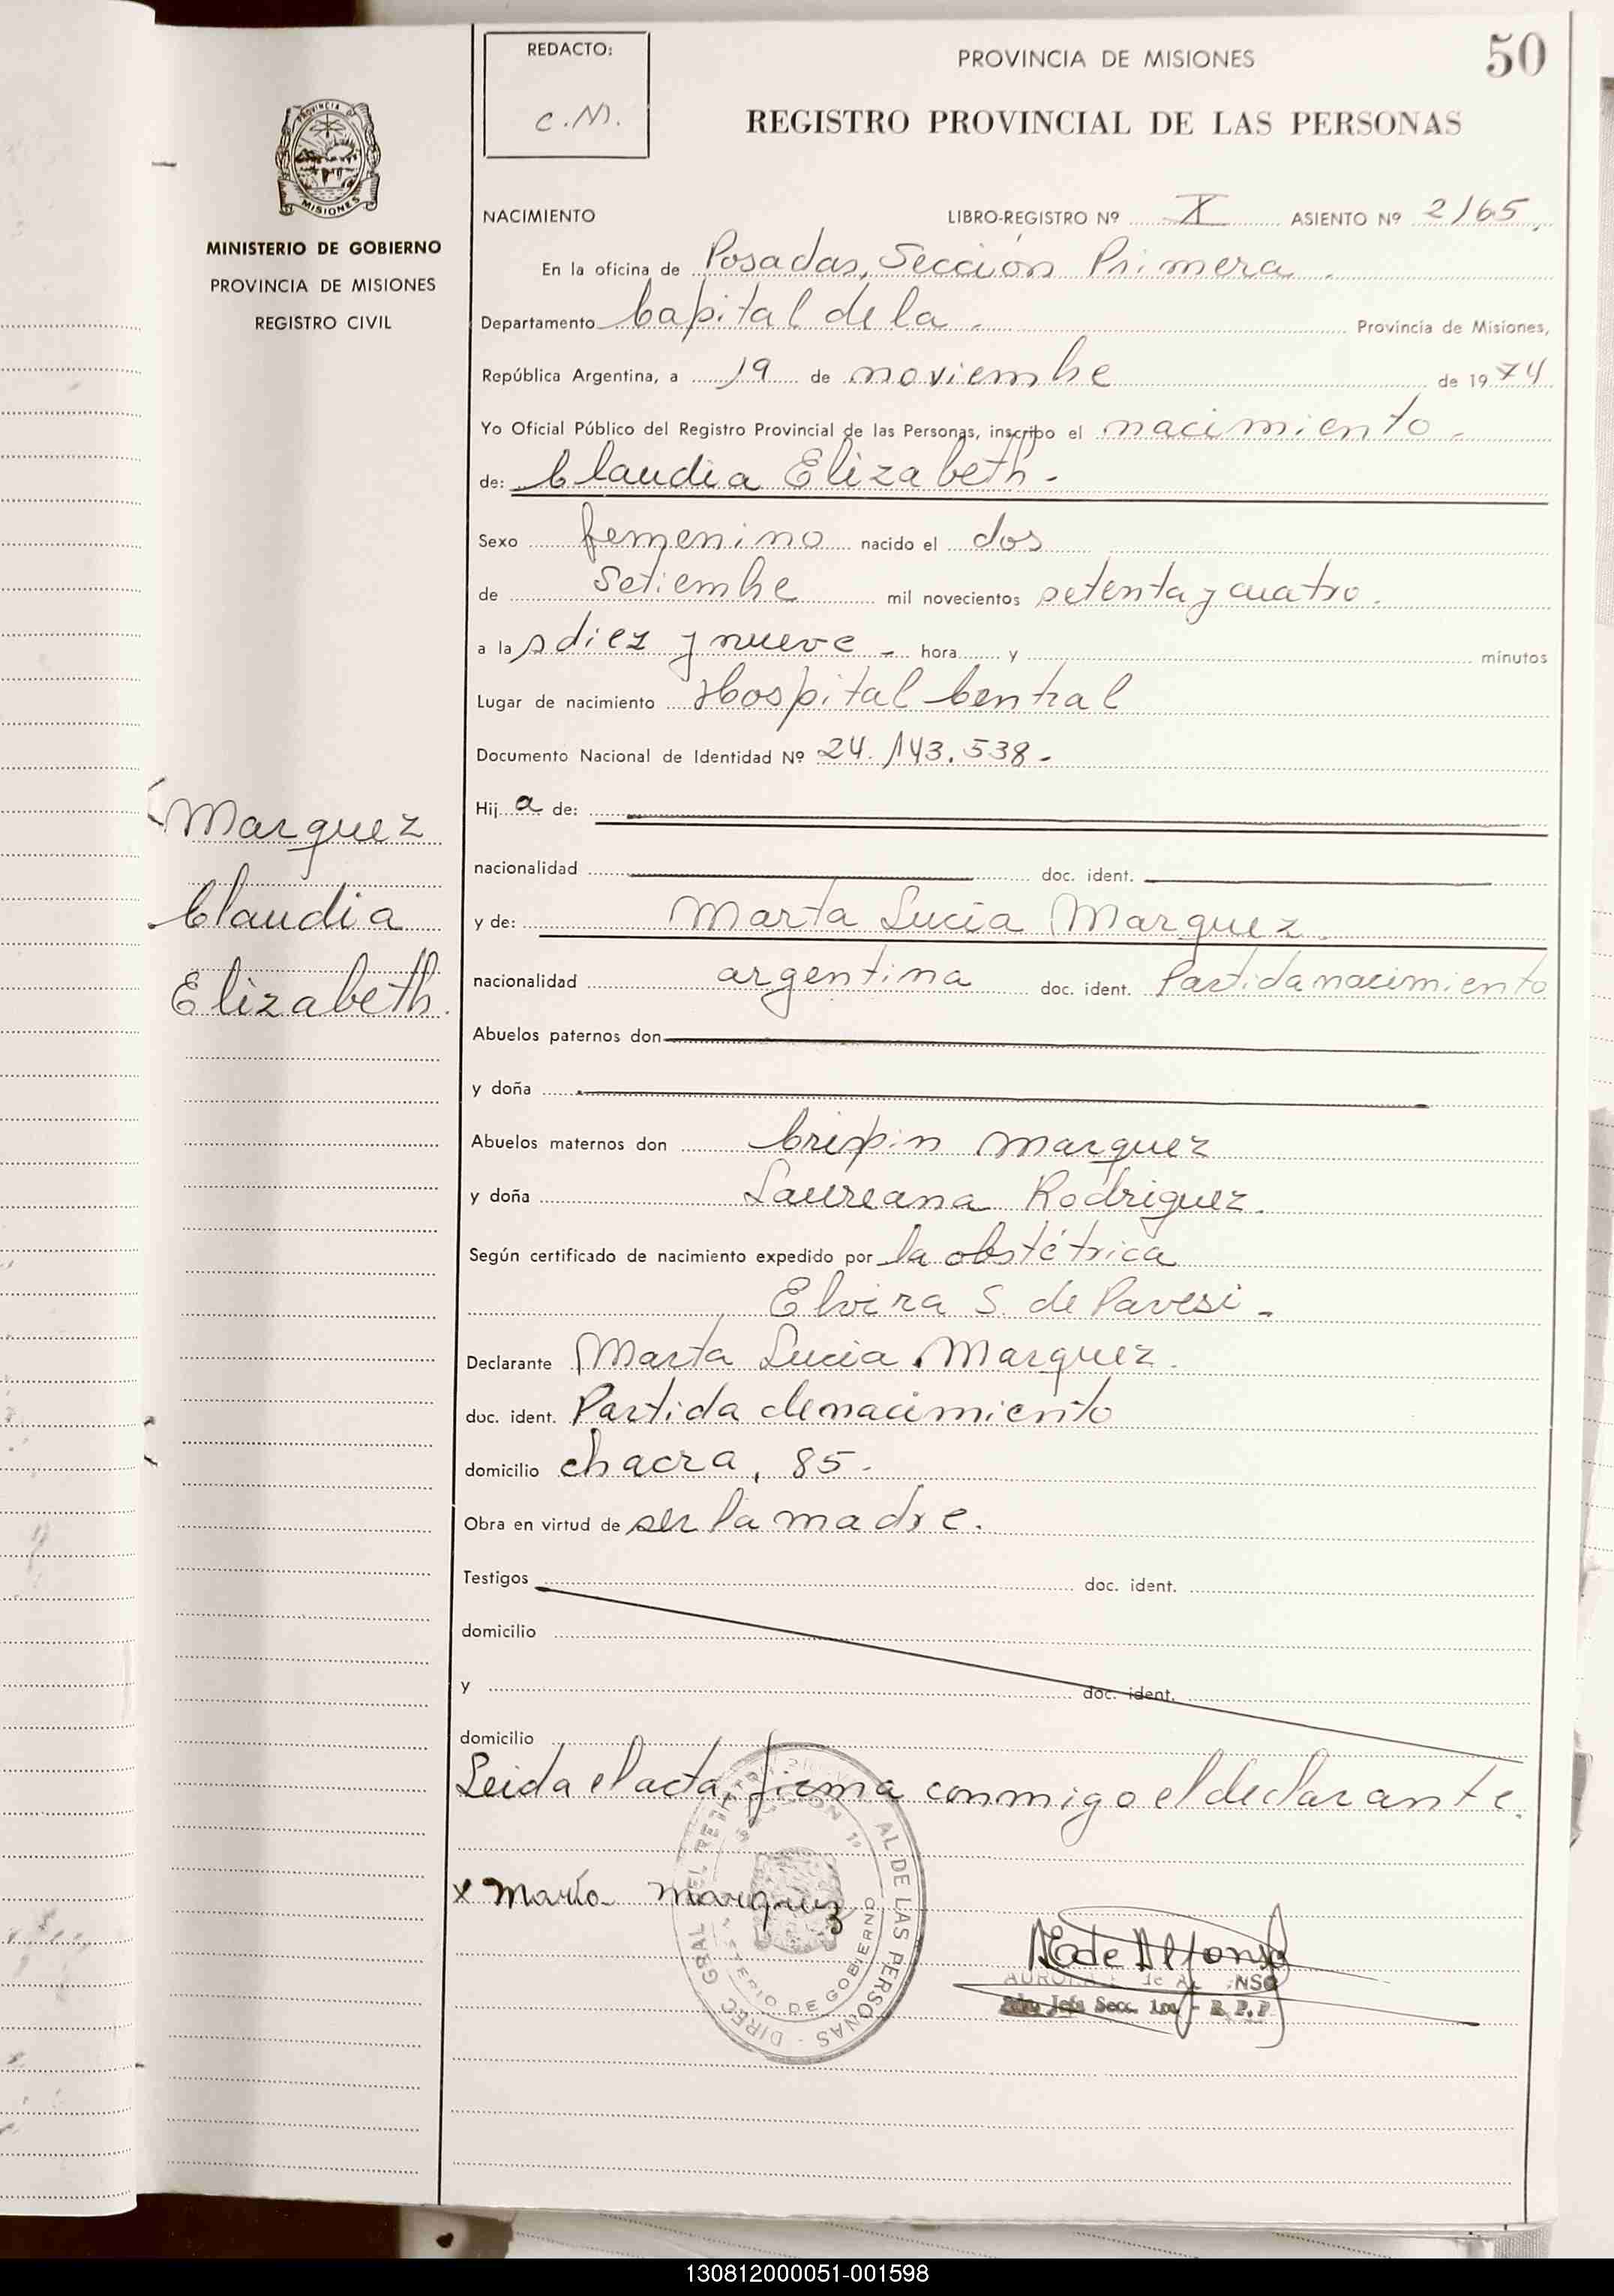 REDACTO:
C.M.
PROVINCIA DE MISIONES
50
REGISTRO PROVINCIAL DE LAS PERSONAS
PROVINCIA
MISIONES
MINISTERIO DE GOBIERNO
PROVINCIA DE MISIONES
REGISTRO CIVIL
NACIMIENTO LIBRO-REGISTRO Nº X ASIENTO Nº 2165
En la oficina de Posadas, Sección Primera.
Departamento Capital de la. Provincia de Misiones,
República Argentina, a 19 de noviembre de 1974
Yo Oficial Público del Registro Provincial de las Personas, inscribo el nacimiento-
de: Claudia Elizabeth-
Sexo femenino nacido el dos
de Setiembre mil novecientos setenta y cuatro.
a las diez y nueve - hora y minutos
Lugar de nacimiento Hospital Central
Documento Nacional de Identidad Nº 24.143.538-
Hij a de:
nacionalidad doc. ident.
y de: Marta Lucia Marquez.
nacionalidad argentina doc. ident. Partida nacimiento
Marquez
Claudia
Elizabeth.
Abuelos paternos don
y doña
Abuelos maternos don Crispin Marquez
y doña Laureana Rodriguez.
Según certificado de nacimiento expedido por la obstétrica
Elvira S. de Pavesi-
Declarante Marta Lucia Marquez.
doc. ident. Partida de nacimiento
domicilio chacra, 85.
Obra en virtud de ser la madre.
Testigos doc. ident.
domicilio
y doc. ident.
domicilio
Leida el acta, firma conmigo el declarante.
x Marta Marquez
AL DE LAS PERSONAS - DIREC GRAL
DE GOBIERNO
de Alfonso
Jefe Secc. 1ra - R.P.P
130812000051-001598